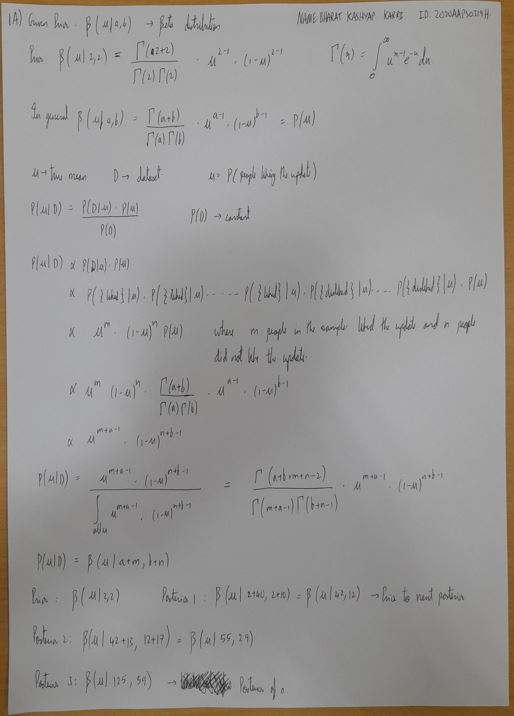 1A) Given Prior : β(μ|a,b) → Beta distribution
NAME: BHARAT KASHYAP KARRI ID: 2020AAPS0219H.
Prior β(μ|2,2) = Γ(2+2) / Γ(2)Γ(2) · μ^2-1 · (1-μ)^2-1
Γ(x) = ∫_0^∞ u^x-1 e^-u du.
In general β(μ|a,b) = Γ(a+b) / Γ(a)Γ(b) · μ^a-1 · (1-μ)^b-1 = P(μ)
μ → true mean D → dataset μ = P(people liking the update)
P(μ|D) = P(D|μ) · P(μ) / P(D)
P(D) → constant
P(μ|D) ∝ P(D|μ) · P(μ)
∝ P({liked}|μ) · P({liked}|μ) ...... P({liked}|μ) · P({disliked}|μ) .... P({disliked}|μ) · P(μ)
∝ μ^m · (1-μ)^n P(μ) where m people in the sample liked the update and n people
did not like the update.
∝ μ^m (1-μ)^n · Γ(a+b) / Γ(a)Γ(b) · μ^a-1 · (1-μ)^b-1
∝ μ^m+a-1 · (1-μ)^n+b-1
P(μ|D) = μ^m+a-1 · (1-μ)^n+b-1 / ∫_all μ μ^m+a-1 · (1-μ)^n+b-1 = Γ(a+b+m+n-2) / Γ(m+a-1) Γ(b+n-1) · μ^m+a-1 · (1-μ)^n+b-1
P(μ|D) = β(μ|a+m, b+n)
Prior : β(μ|2,2) Posterior 1 : β(μ|2+40, 2+10) = β(μ|42,12) → Prior to next posterior
Posterior 2: β(μ|42+13, 12+17) = β(μ|55,29)
Posterior 3: β(μ|125,59) → Posterior of